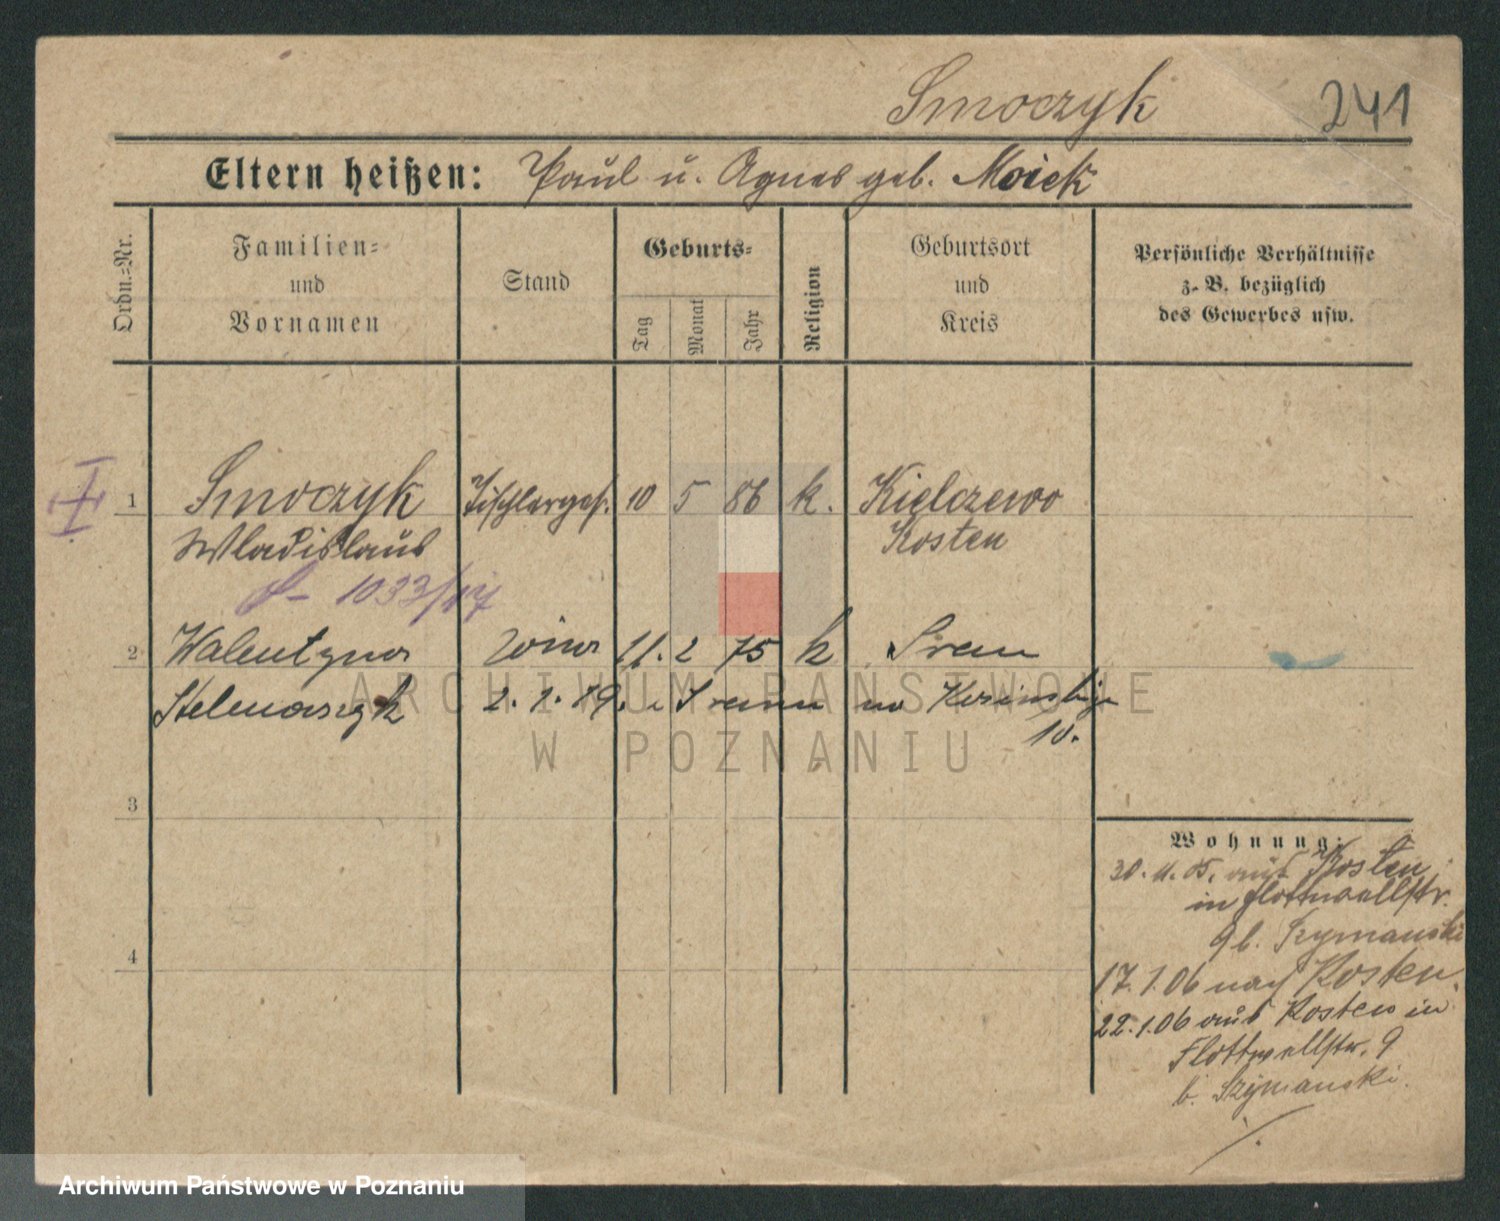 Smoczyk 241
Eltern heißen: Paul u. Agnes geb. Moick
Ordn.=Nr.
Familien=
und
Vornamen
Stand
Geburts=
Tag
Monat
Jahr
Religion
Geburtsort
und
Kreis
Persönliche Verhältnisse
z. B. bezüglich
des Gewerbes usw.
1 Smoczyk Tischlerges. 10 5 86 k. Kielczewo
Wladislaus Kosten
1033/17
2 Walentyna 11. 2 75 k Srem
Stelmaszyk 2. 1. 19. Srem
10.
3
4
Wohnung:
30. 11. 05. aus Kosten
in Flottwellstr.
9 b. Szymanski
17. 1. 06 nach Kosten.
22. 1. 06 aus Kosten in
Flottwellstr. 9
b. Szymanski.
ARCHIWUM PAŃSTWOWE
W POZNANIU
Archiwum Państwowe w Poznaniu